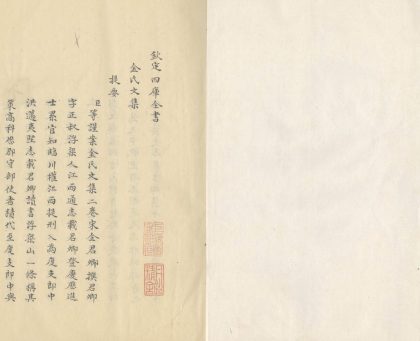 欽定四庫全書
金氏文集
提要
臣等謹案金氏文集二卷宋金君卿撰君卿
字正叔浮梁人江西通志載君卿登慶歴進
士累官知臨川權江西提刑入為度支郎中
洪邁夷堅志載君卿讀書浮梁山一條稱其
策高科歴郡守部使者積代至度支郎中與